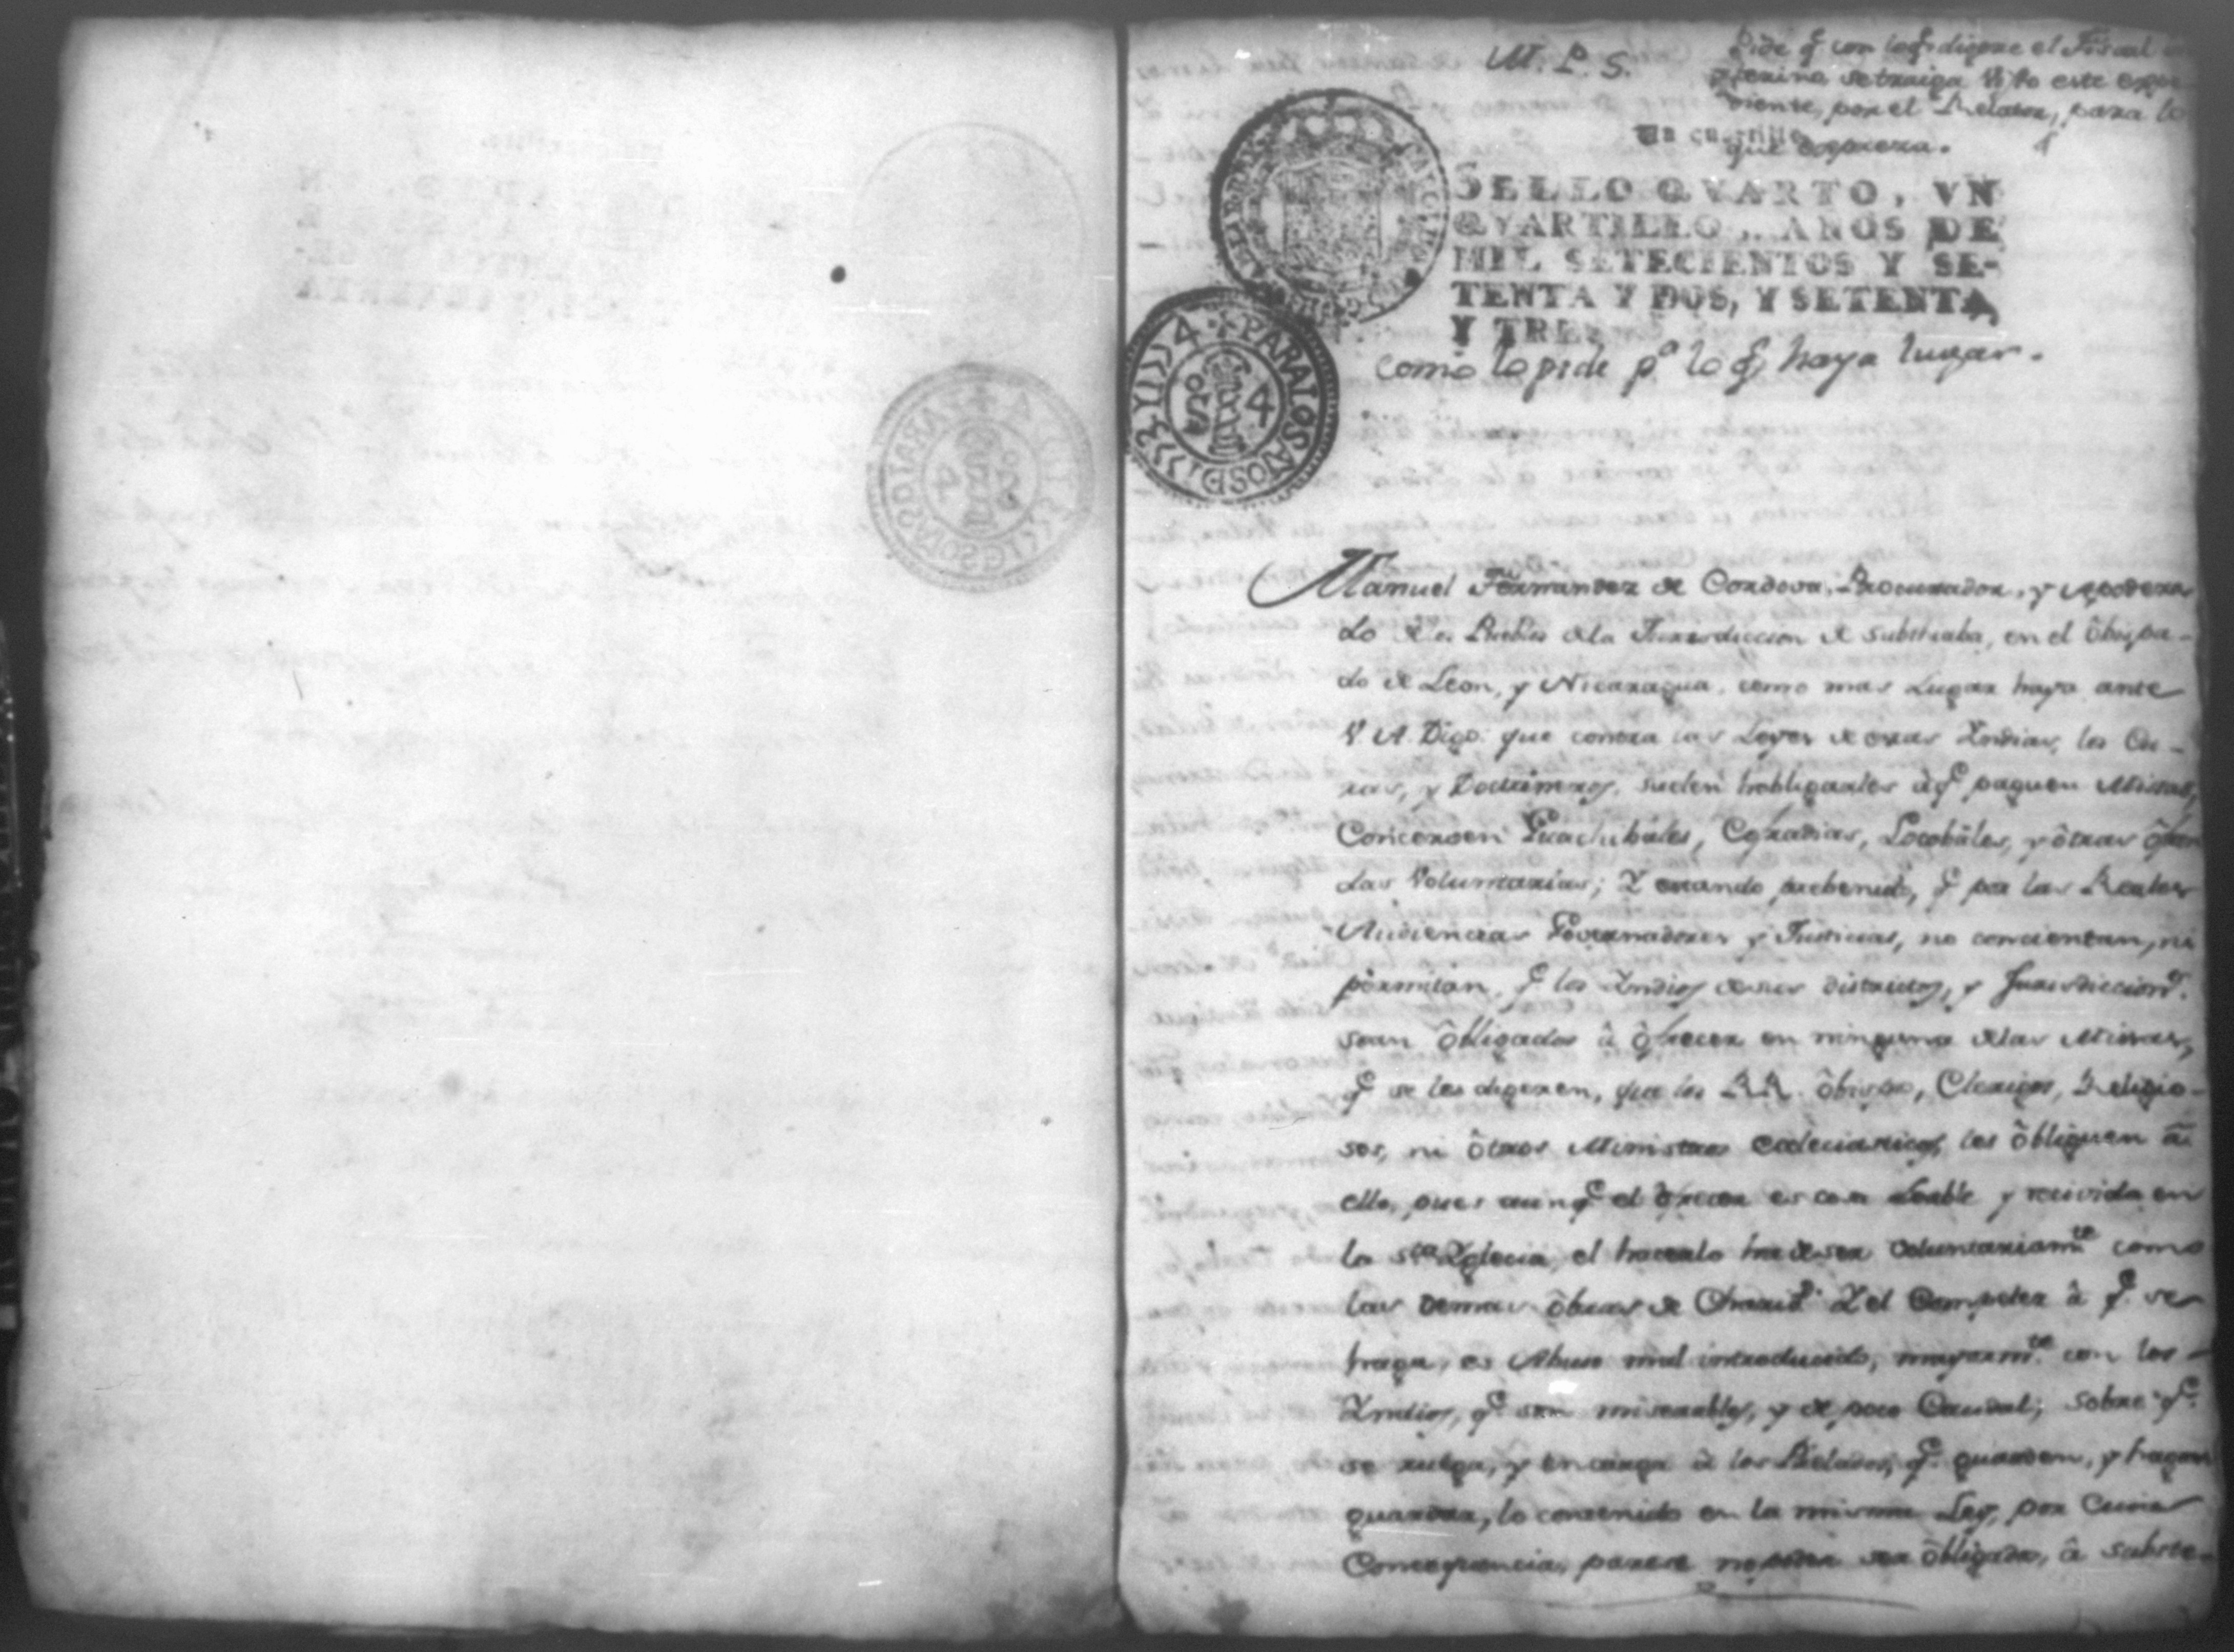 M. P. S.
Pide q.e con lo q.e digere el Fiscal
se traiga Visto este expe
diente, por el Relator, para lo
que expresa.
Un cuartillo
SELLO QVARTO, VN
QVARTILLO, AÑOS DE
MIL SETECIENTOS Y SE-
TENTA Y DOS, Y SETENTA
Y TRES
PARA LOS AÑOS D 1773 Y 1774
como lo pide p.a lo q.e haya lugar.
Manuel Fernandez de Cordova, Procurador, y apodera
do de Pueblos dela Jurisdiccion de Subtiaba, en el ôbispa-
do de Leon, y Nicaragua, como mas Lugar haya ante
V. A. Digo: que contra las Leyes de estas Indias, los Cu-
ras, y Doctrineros, suelen hobligarles à q.e paguen Missas,
Guachibales, Cofradias, y ôtras ôfren
das Voluntarias; Y estando prebenido, q.e por las Reales
Audiencias Governadores y Justicias, no concientan, ni
permitan, q.e los Indios de sus districtos, y Jurisdiccion.s
sean ôbligados â ôfrecer en ninguna delas Missas,
q.e se les digeren, que los RR. ôbispos, Clerigos, Religio-
sos, ni ôtros Ministros eccleciasticos, les ôbliguen â
ello, pues aunq.e el ôfrecer es cosa Loable y recivida en
la Sta. Yglecia, el hacerlo ha de ser voluntariam.te como
las demas ôbras de Charid.d Y el Compeler â q.e se
haga, es Abuso mal introducido, mayorm.te con los
Indios, q.e son miserables, y de poco Caudal; sobre q.e
se ruega, y encarga â los Prelados, q.e guarden, y hagan
guardar, lo contenido en la misma Ley, por Cuia
Consequencia, parece no poder ser ôbligados, â